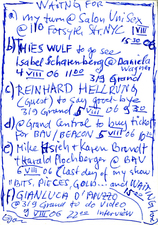 WAITING FOR
a) my turn @ Salon UniSex
@ 110 Forsyth Str. NYC VIII
15:30 06
b) THIES WULF to go see
Isabel Schanenberg @ Daniela
4 VIII 06 1100 319 Grand
c) REINHARD HELLRUNG
(Guest) to say good-bye
319 Grand 5 VIII 06
d) Grand Central to buy ticket
for BAU/BEACON 5 VIII 06
e) Mike Hsieh + Karen Brandt
+ Harald Plochberger @ BAU
6 VIII 06 (last day of my show
"BITS, PIECES, GOLD... and
f) GIANLUCA D'ANZE
@ 319 Grand to do video
9 VIII 06 22oo interview